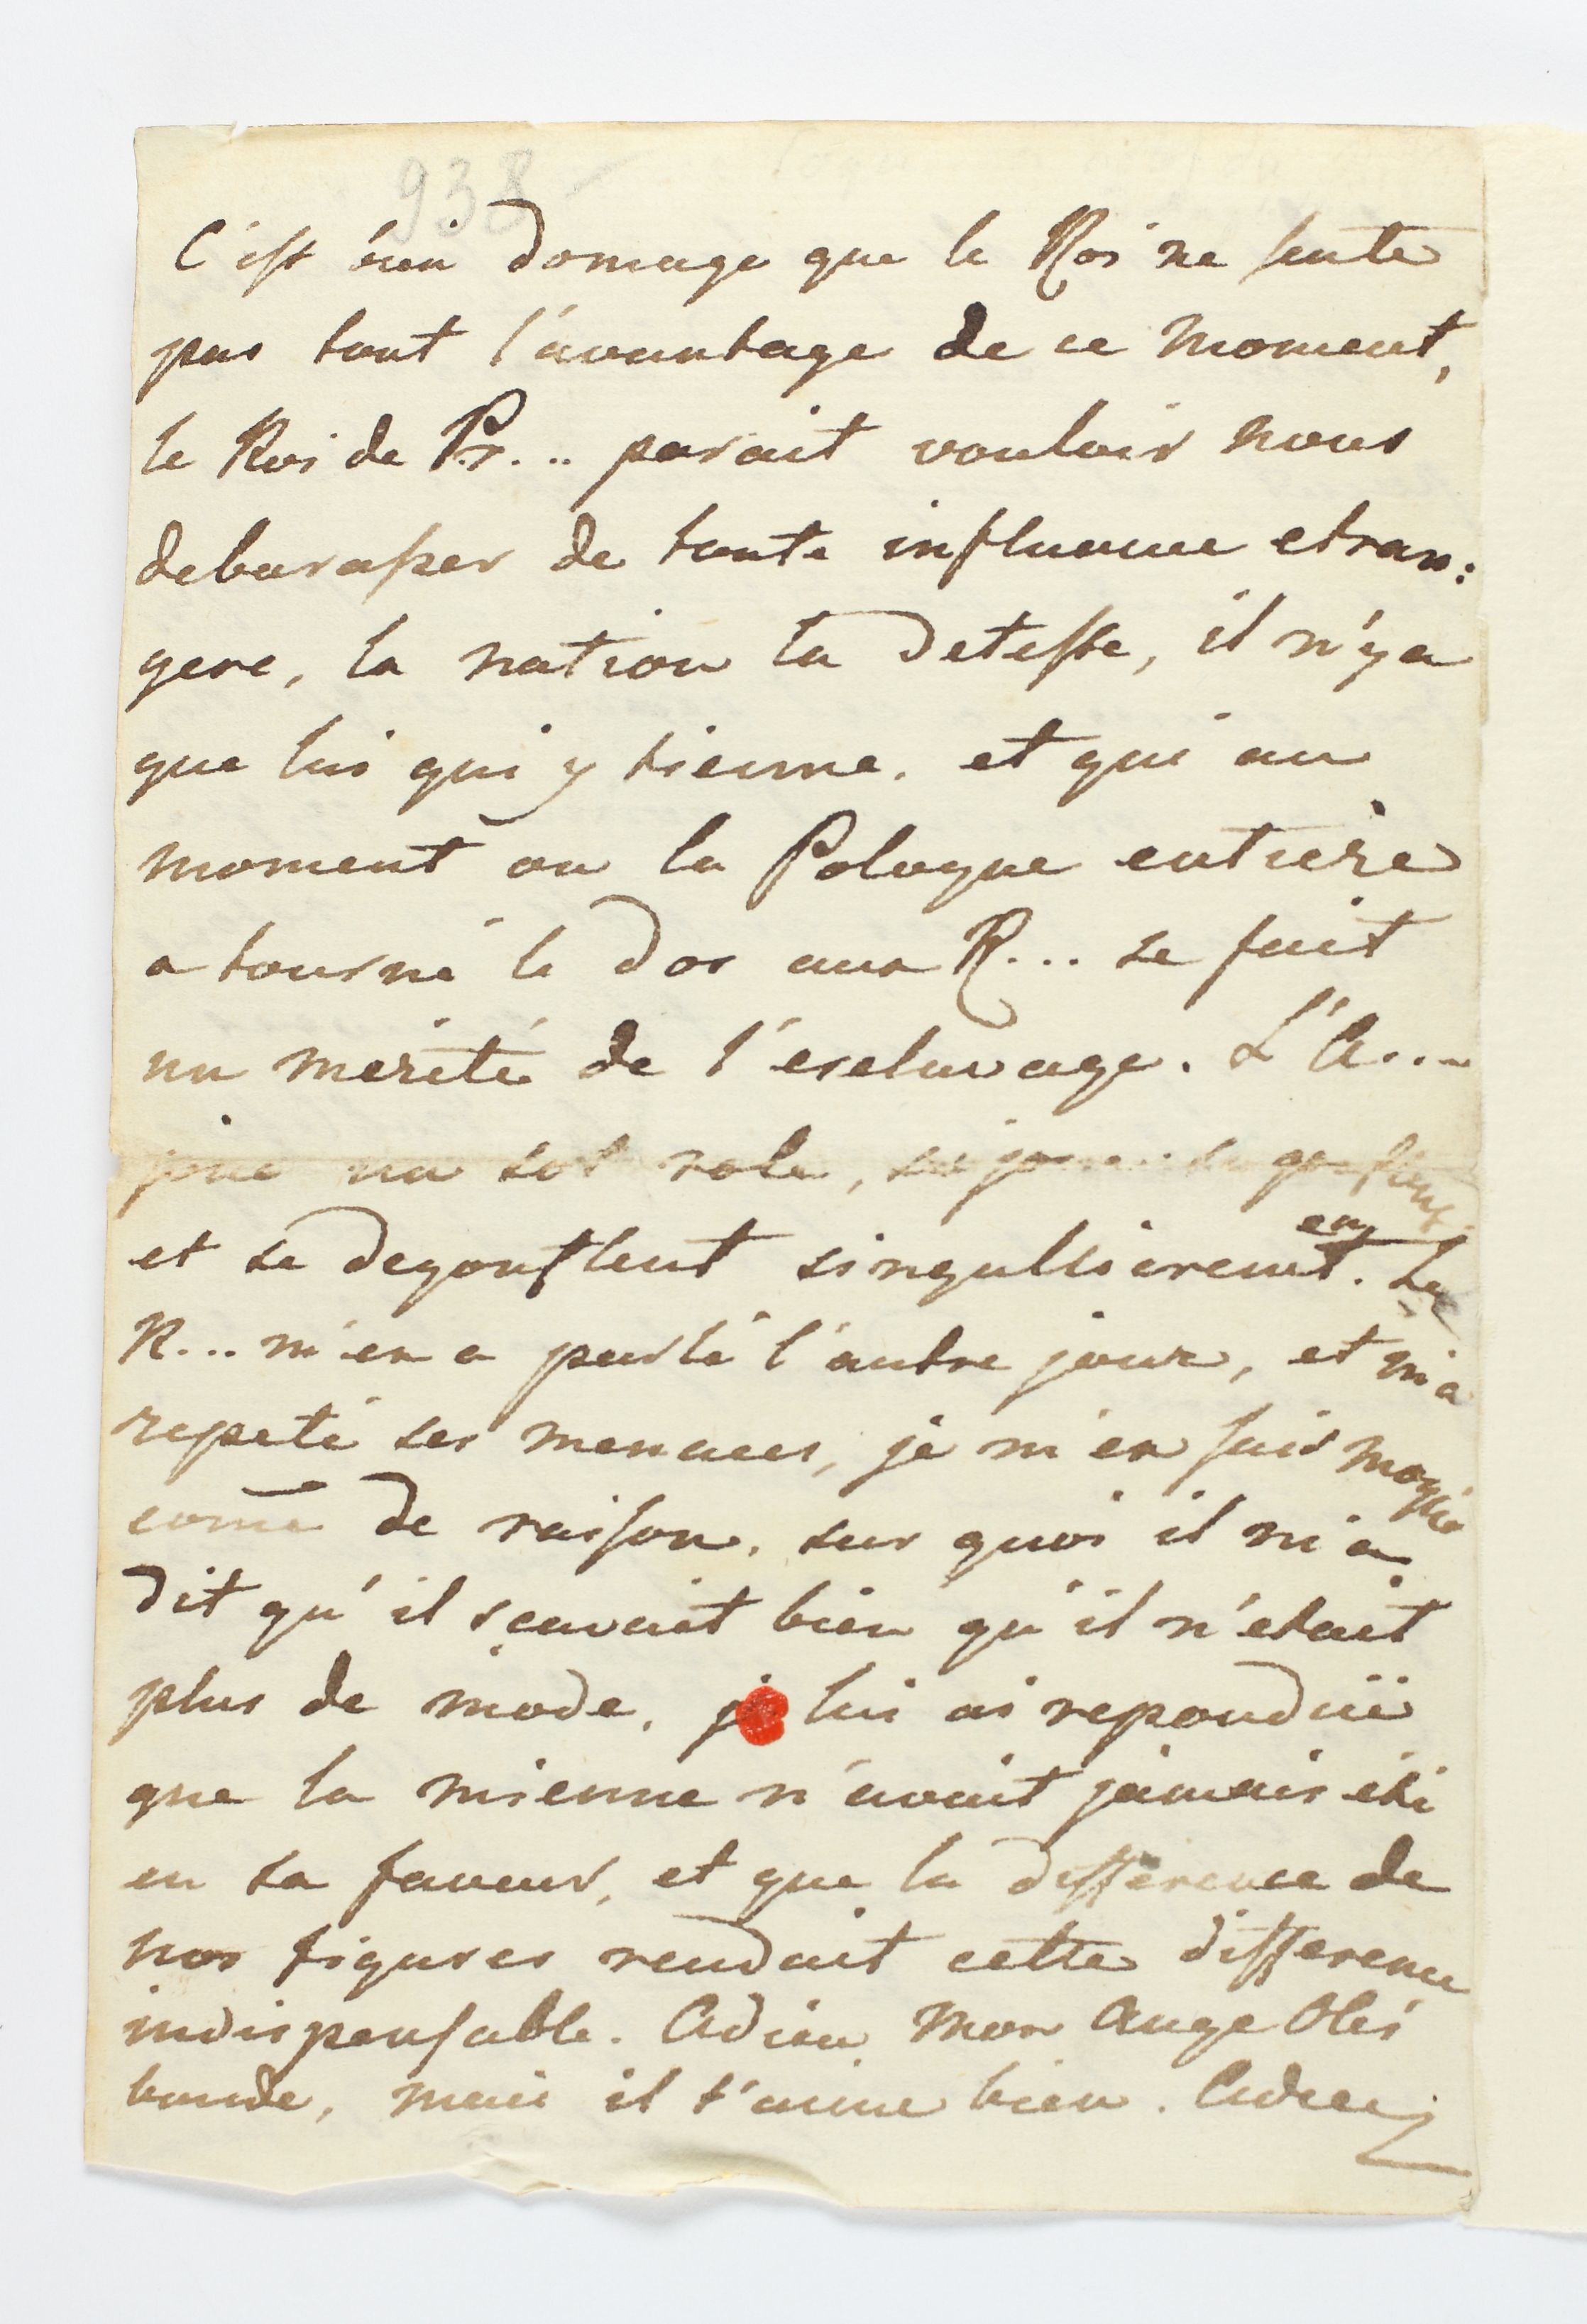 938
C'est bien domage que le Roi ne sente
pas tout l'avantage de ce moment,
le Roi de Pr... parait vouloir nous
debarasser de toute influence etran:
gere, la nation la deteste, il n'y a
que lui qui y tienne, et qui au
moment ou la Pologne entiere
a tourné le dos aux R... se fait
un merite de l'esclavage. L'A...
joue un sot role, se gonflent
et se degonflent singullierement. Le
R... m'en a parlé l'autre jour, et m'a
repeté ses menaces, je m'en suis moquée
come de raison, sur quoi il m'a
dit qu'il sçavait bien qu'il n'etait
plus de mode, je lui ai reponduë
que la mienne n'avait jamais été
en sa faveur, et que la difference de
nos figures rendait cette difference
indispensable. Adieu Mon Ange Olés
boude, mais il t'aime bien. Adieu